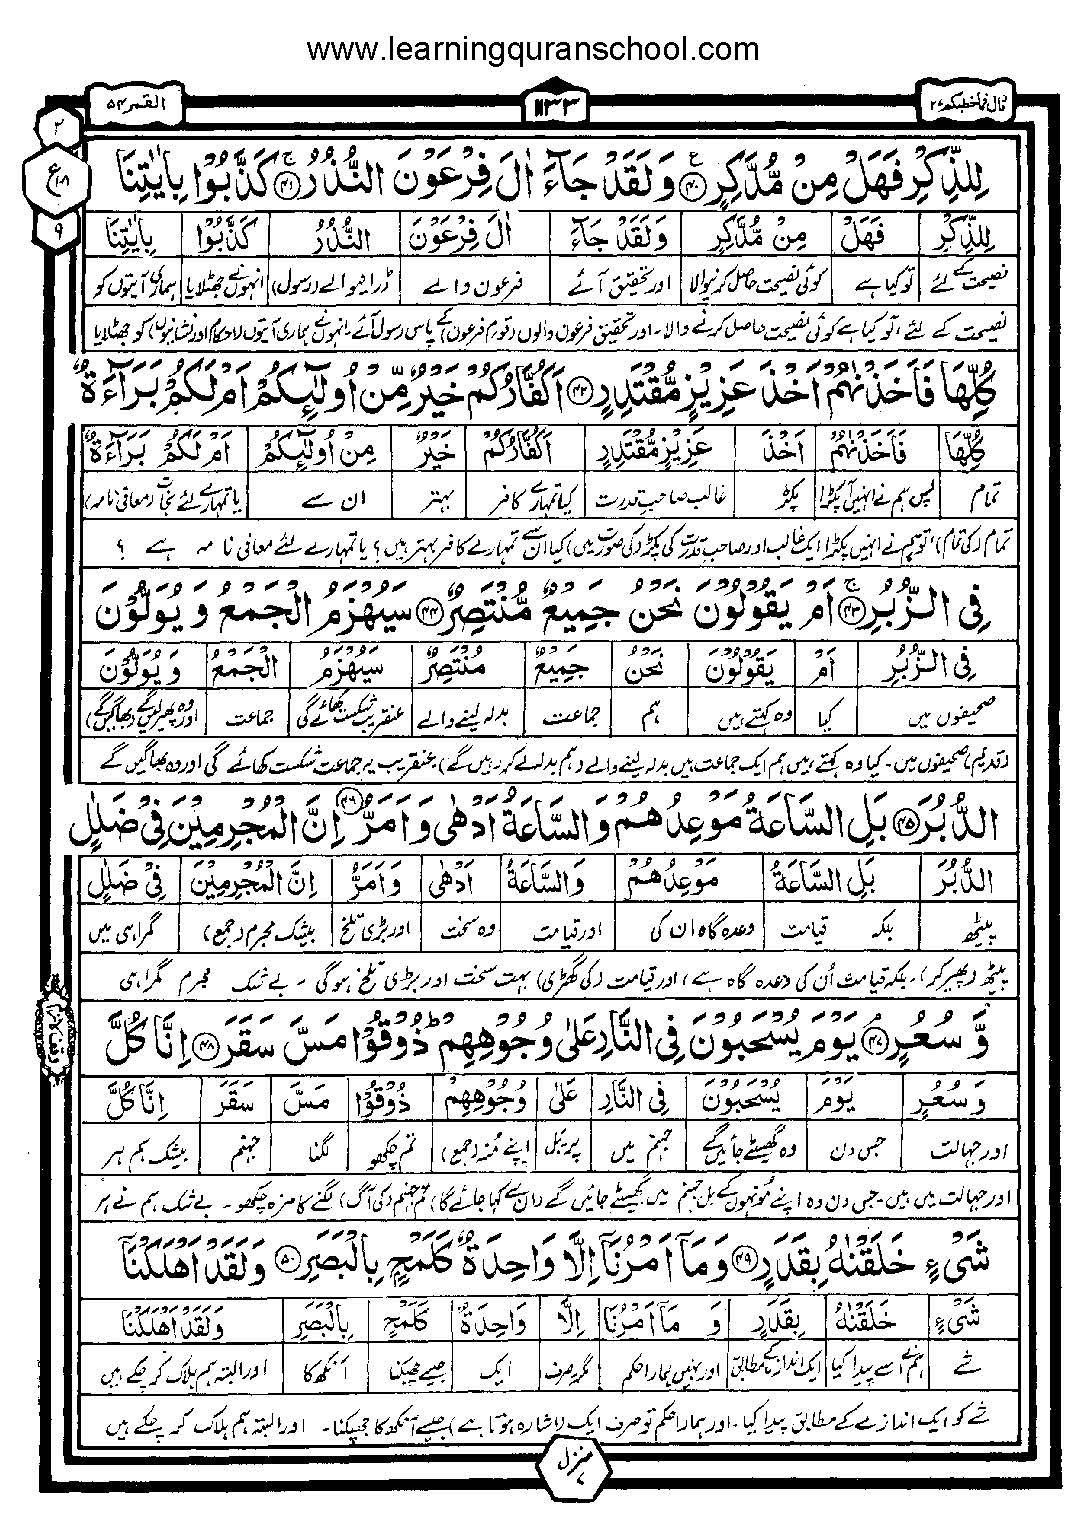 www.learningquranschool.com
قال فما خطبکم ۲۷
۱۱۳۳
القمر ۵۴
لِلذِّكْرِ فَهَلْ مِنْ مُّدَّكِرٍ ﴿۴۰﴾ ع وَلَقَدْ جَآءَ اٰلَ فِرْعَوْنَ النُّذُرُ ﴿۴۱﴾ ج كَذَّبُوْا بِاٰيٰتِنَا
۲
ع
۹
لِلذِّكْرِ فَهَلْ مِنْ مُّدَّكِرٍ وَلَقَدْ جَآءَ اٰلَ فِرْعَوْنَ النُّذُرُ كَذَّبُوْا بِاٰيٰتِنَا
نصیحت کے لئے تو کیا ہے کوئی نصیحت حاصل کرنیوالا اور تحقیق آئے فرعون والے ڈرانیوالے (رسول) انہوں نے جھٹلایا ہماری آیتوں کو
نصیحت کے لئے، تو کیا ہے کوئی نصیحت حاصل کرنے والا۔ اور تحقیق فرعون والوں (قوم فرعون) کے پاس رسول آئے، انہوں نے ہماری آیتوں (احکام اور نشانیوں) کو جھٹلایا
كُلِّهَا فَاَخَذْنٰهُمْ اَخْذَ عَزِيْزٍ مُّقْتَدِرٍ ﴿۴۲﴾ اَكُفَّارُكُمْ خَيْرٌ مِّنْ اُولٰٓئِكُمْ اَمْ لَكُمْ بَرَآءَةٌ
كُلِّهَا فَاَخَذْنٰهُمْ اَخْذَ عَزِيْزٍ مُّقْتَدِرٍ اَكُفَّارُكُمْ خَيْرٌ مِنْ اُولٰٓئِكُمْ اَمْ لَكُمْ بَرَآءَةٌ
تمام پس ہم نے انہیں آ پکڑا پکڑ غالب صاحبِ قدرت کیا تمہارے کافر بہتر ان سے یا تمہارے لئے نجات (معافی نامہ)
تمام (کی تمام)، تو ہم نے انہیں پکڑا ایک غالب اور صاحبِ قدرت کی پکڑ (کی صورت میں) کیا ان سے تمہارے کافر بہتر ہیں؟ یا تمہارے لئے معافی نامہ ہے ؟
فِى الزُّبُرِ ﴿۴۳﴾ ج اَمْ يَقُوْلُوْنَ نَحْنُ جَمِيْعٌ مُّنْتَصِرٌ ﴿۴۴﴾ سَيُهْزَمُ الْجَمْعُ وَيُوَلُّوْنَ
فِى الزُّبُرِ اَمْ يَقُوْلُوْنَ نَحْنُ جَمِيْعٌ مُنْتَصِرٌ سَيُهْزَمُ الْجَمْعُ وَيُوَلُّوْنَ
صحیفوں میں کیا وہ کہتے ہیں ہم جماعت بدلہ لینے والے عنقریب شکست کھائے گی جماعت اور وہ پھیر لیں گے (بھاگیں گے)
(قدیم) صحیفوں میں۔ کیا وہ کہتے ہیں ہم ایک جماعت ہیں بدلہ لینے والے (ہم بدلہ لے کر رہیں گے)، عنقریب یہ جماعت شکست کھائے گی اور وہ بھاگیں گے
الدُّبُرَ ﴿۴۵﴾ بَلِ السَّاعَةُ مَوْعِدُهُمْ وَالسَّاعَةُ اَدْهٰى وَاَمَرُّ ﴿۴۶﴾ اِنَّ الْمُجْرِمِيْنَ فِىْ ضَلٰلٍ
الدُّبُرَ بَلِ السَّاعَةُ مَوْعِدُهُمْ وَالسَّاعَةُ اَدْهٰى وَاَمَرُّ اِنَّ الْمُجْرِمِيْنَ فِىْ ضَلٰلٍ
پیٹھ بلکہ قیامت وعدہ گاہ ان کی اور قیامت وہ سخت اور بڑی تلخ بیشک مجرم (جمع) گمراہی میں
پیٹھ (پھیر کر)، بلکہ قیامت اُن کی وعدہ گاہ ہے، اور قیامت (کی گھڑی) بہت سخت اور بڑی تلخ ہوگی۔ بے شک مجرم گمراہی
وَّسُعُرٍ ﴿۴۷﴾ يَوْمَ يُسْحَبُوْنَ فِى النَّارِ عَلٰى وُجُوْهِهِمْ ؕ ذُوْقُوْا مَسَّ سَقَرَ ﴿۴۸﴾ اِنَّا كُلَّ
وَسُعُرٍ يَوْمَ يُسْحَبُوْنَ فِى النَّارِ عَلٰى وُجُوْهِهِمْ ذُوْقُوْا مَسَّ سَقَرَ اِنَّا كُلَّ
اور جہالت جس دن وہ گھسیٹے جائیں گے جہنم میں پر۔ بل اپنے منہ (جمع) تم چکھو لگنا جہنم بیشک ہم ہر
اور جہالت میں ہیں۔ جس دن وہ اپنے مونہوں کے بل جہنم میں گھسیٹے جائیں گے (ان سے کہا جائے گا) تم جہنم (کی آگ) لگنے کا مزہ چکھو۔ بے شک ہم نے ہر
شَىْءٍ خَلَقْنٰهُ بِقَدَرٍ ﴿۴۹﴾ وَمَآ اَمْرُنَآ اِلَّا وَاحِدَةٌ كَلَمْحٍۭ بِالْبَصَرِ ﴿۵۰﴾ وَلَقَدْ اَهْلَكْنَآ
شَىْءٍ خَلَقْنٰهُ بِقَدَرٍ وَ مَآ اَمْرُنَآ اِلَّا وَاحِدَةٌ كَلَمْحٍ بِالْبَصَرِ وَلَقَدْ اَهْلَكْنَآ
شے ہم نے اسے پیدا کیا ایک اندازے کے مطابق اور نہیں ہمارا حکم مگر۔ صرف ایک جیسے جھپکنا آنکھ کا اور البتہ ہم ہلاک کر چکے ہیں
شے کو ایک اندازے کے مطابق پیدا کیا۔ اور ہمارا حکم تو صرف ایک (اشارہ ہوتا ہے)، جیسے آنکھ کا جھپکنا۔ اور البتہ ہم ہلاک کر چکے ہیں
منزل ۷